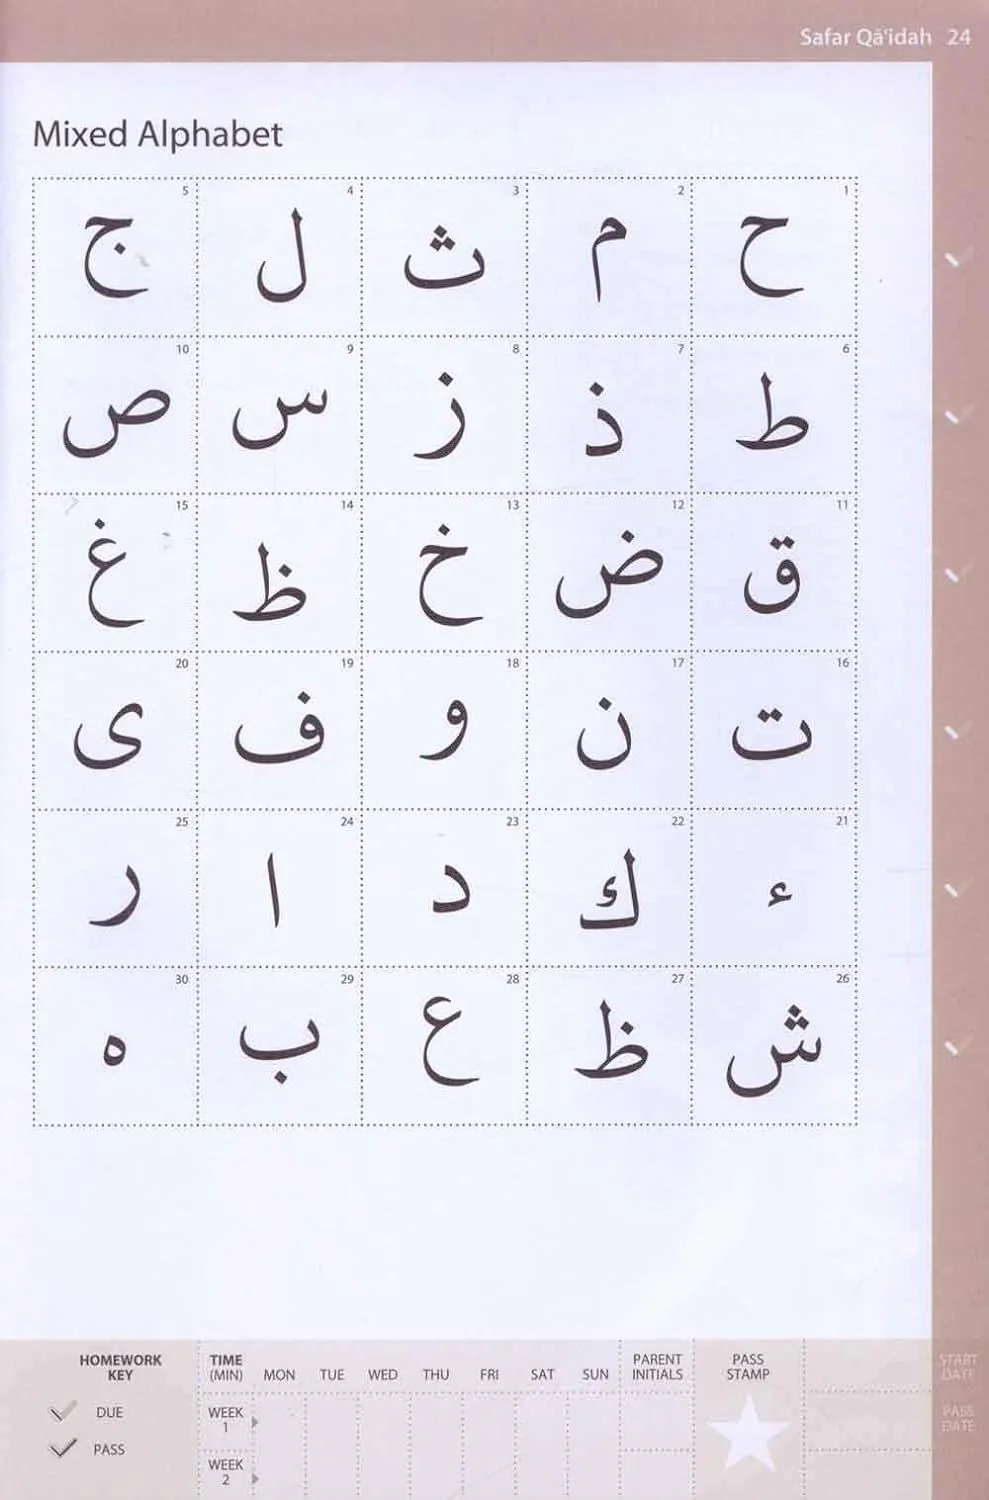 Safar Qā'idah 24
Mixed Alphabet
1 ح 2 م 3 ث 4 ل 5 ج
6 ط 7 ذ 8 ز 9 س 10 ص
11 ق 12 ض 13 خ 14 ظ 15 غ
16 ت 17 ن 18 و 19 ف 20 ى
21 ء 22 ك 23 د 24 ا 25 ر
26 ش 27 ظ 28 ع 29 ب 30 ه
HOMEWORK KEY
DUE
PASS
TIME (MIN) MON TUE WED THU FRI SAT SUN PARENT INITIALS PASS STAMP
WEEK 1
WEEK 2
START DATE
PASS DATE